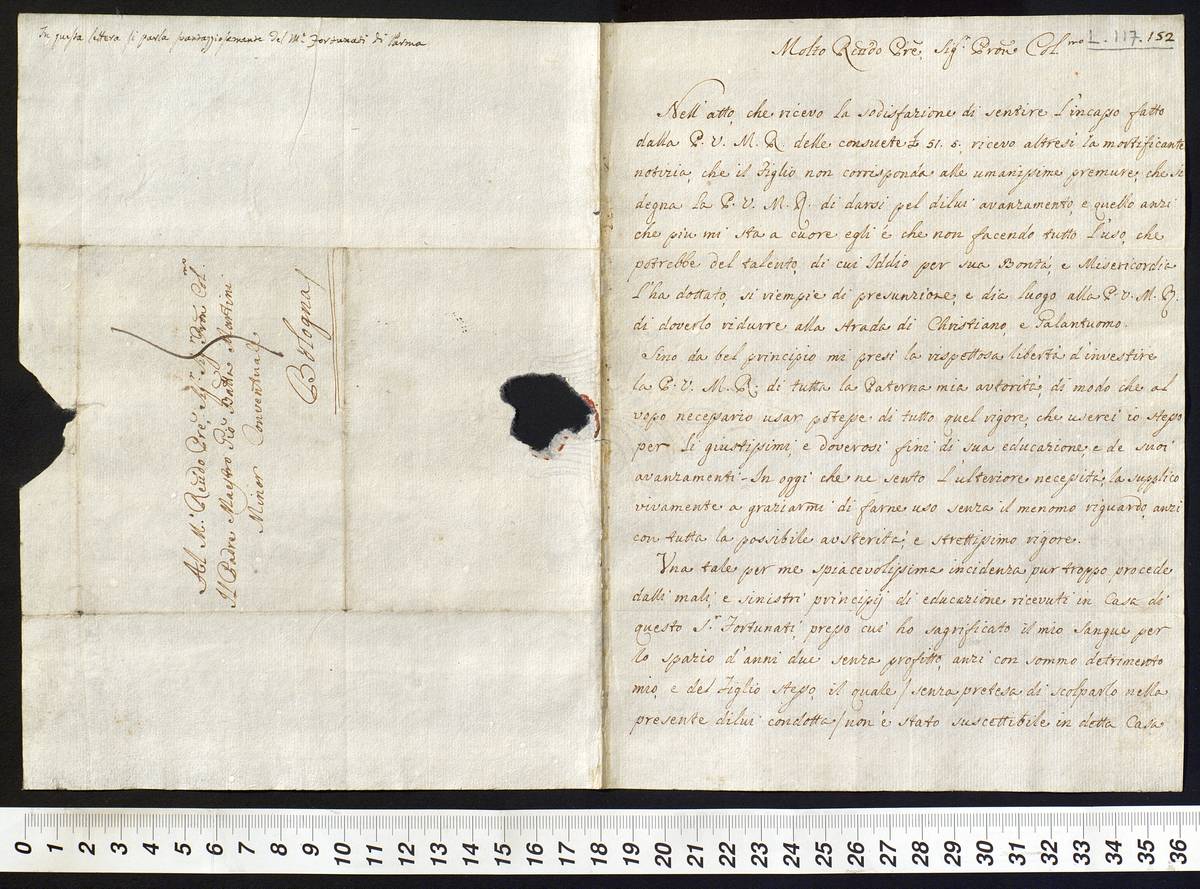 In questa lettera si parla svantaggiosamente del M.º Fortunati di Parma
Al M.º Rẽndo Prẽ Sigʳ. Sigʳ. Prõn Col.ᵐᵒ
Il Padre Maestro Gio Batta Martini
Minor Conventuale
Bologna
L. 117. 152
Molto Rẽndo Prẽ, Sigʳ Prõn Col.ᵐᵒ
Nell'atto, che ricevo la sodisfazione di sentire l'incasso fatto
dalla P. V. M. R. delle consuete £ 51. 5. ricevo altresì la mortificante
notizia, che il Figlio non corrisponda alle umanissime premure, che si
degna la P. V. M. R. di darsi pel dilui avanzamento, e quello anzi
che piu mi sta a cuore egli è che non facendo tutto l'uso, che
potrebbe del talento, di cui Iddio per sua Bontà, e Misericordia
l'ha dottato, si riempie di presunzione, e dia luogo alla P. V. M. R.
di doverlo ridurre alla strada di Christiano, e Galantuomo.
Sino da bel principio mi presi la rispettosa libertà d'investire
la P. V. M. R. di tutta la Paterna mia autorità, di modo che al
uopo necessario usar potesse di tutto quel rigore, che userei io stesso
per li giustissimi, e doverosi fini di sua educazione, e de suoi
avanzamenti - In oggi che ne sento l'ulteriore necessità, la supplico
vivamente a graziarmi di farne uso senza il menomo riguardo, anzi
con tutta la possibile austerità, e strettissimo rigore.
Una tale per me spiacevolissima incidenza pur troppo procede
dalli mali, e sinistri principij di educazione ricevuti in Casa di
questo S.ʳ Fortunati, presso cui ho sagrificato il mio sangue per
lo spazio d'anni due senza profitto, anzi con sommo detrimento
mio, e del Figlio stesso, il quale / senza pretesa di scolparlo nella
presente dilui condotta / non è stato suscettibile in detta Casa